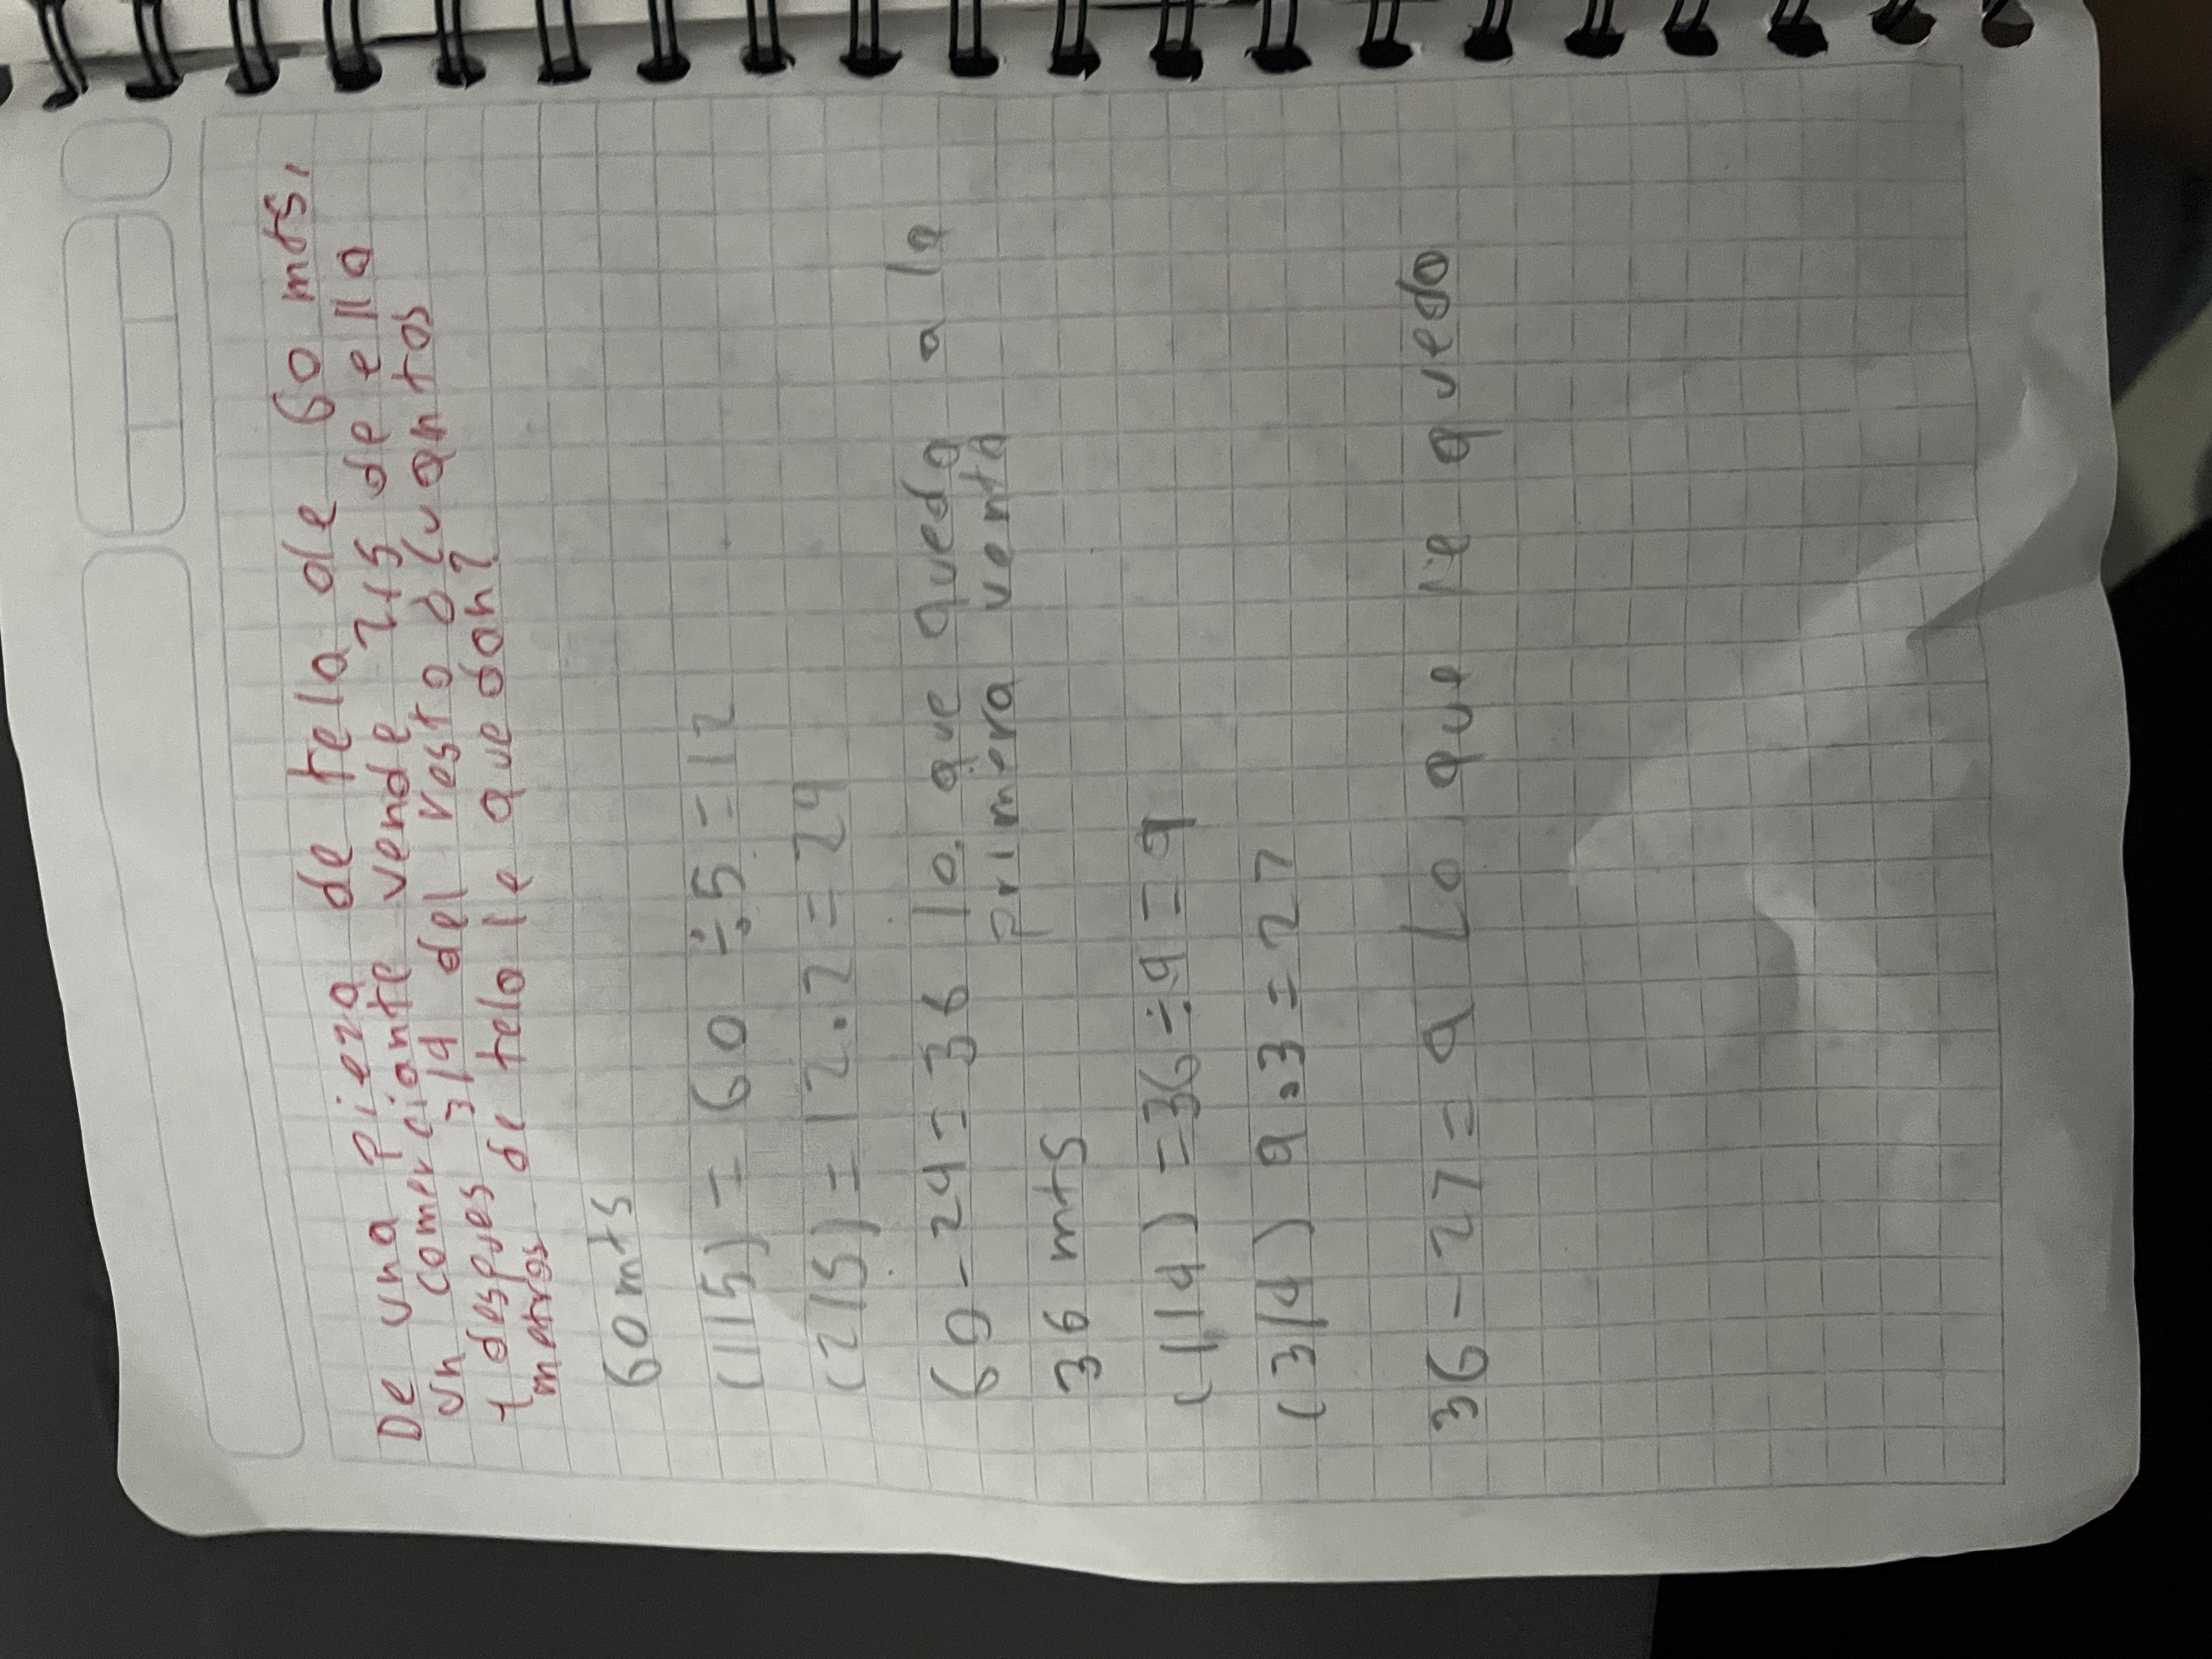 De una pieza de tela de 60 mts,
un comerciante vende 2/5 de ella
y despues 3/4 del resto ¿Cuantos
metros de tela le quedan?
60 mts
(1/5) = 60 ÷ 5 = 12
(2/5) = 12.2 = 24
60 - 24 = 36 lo que quedo a la
primera venta
36 mts
(1/4) = 36 ÷ 4 = 9
(3/4) 9.3 = 27
36 - 27 = 9 Lo que le quedo